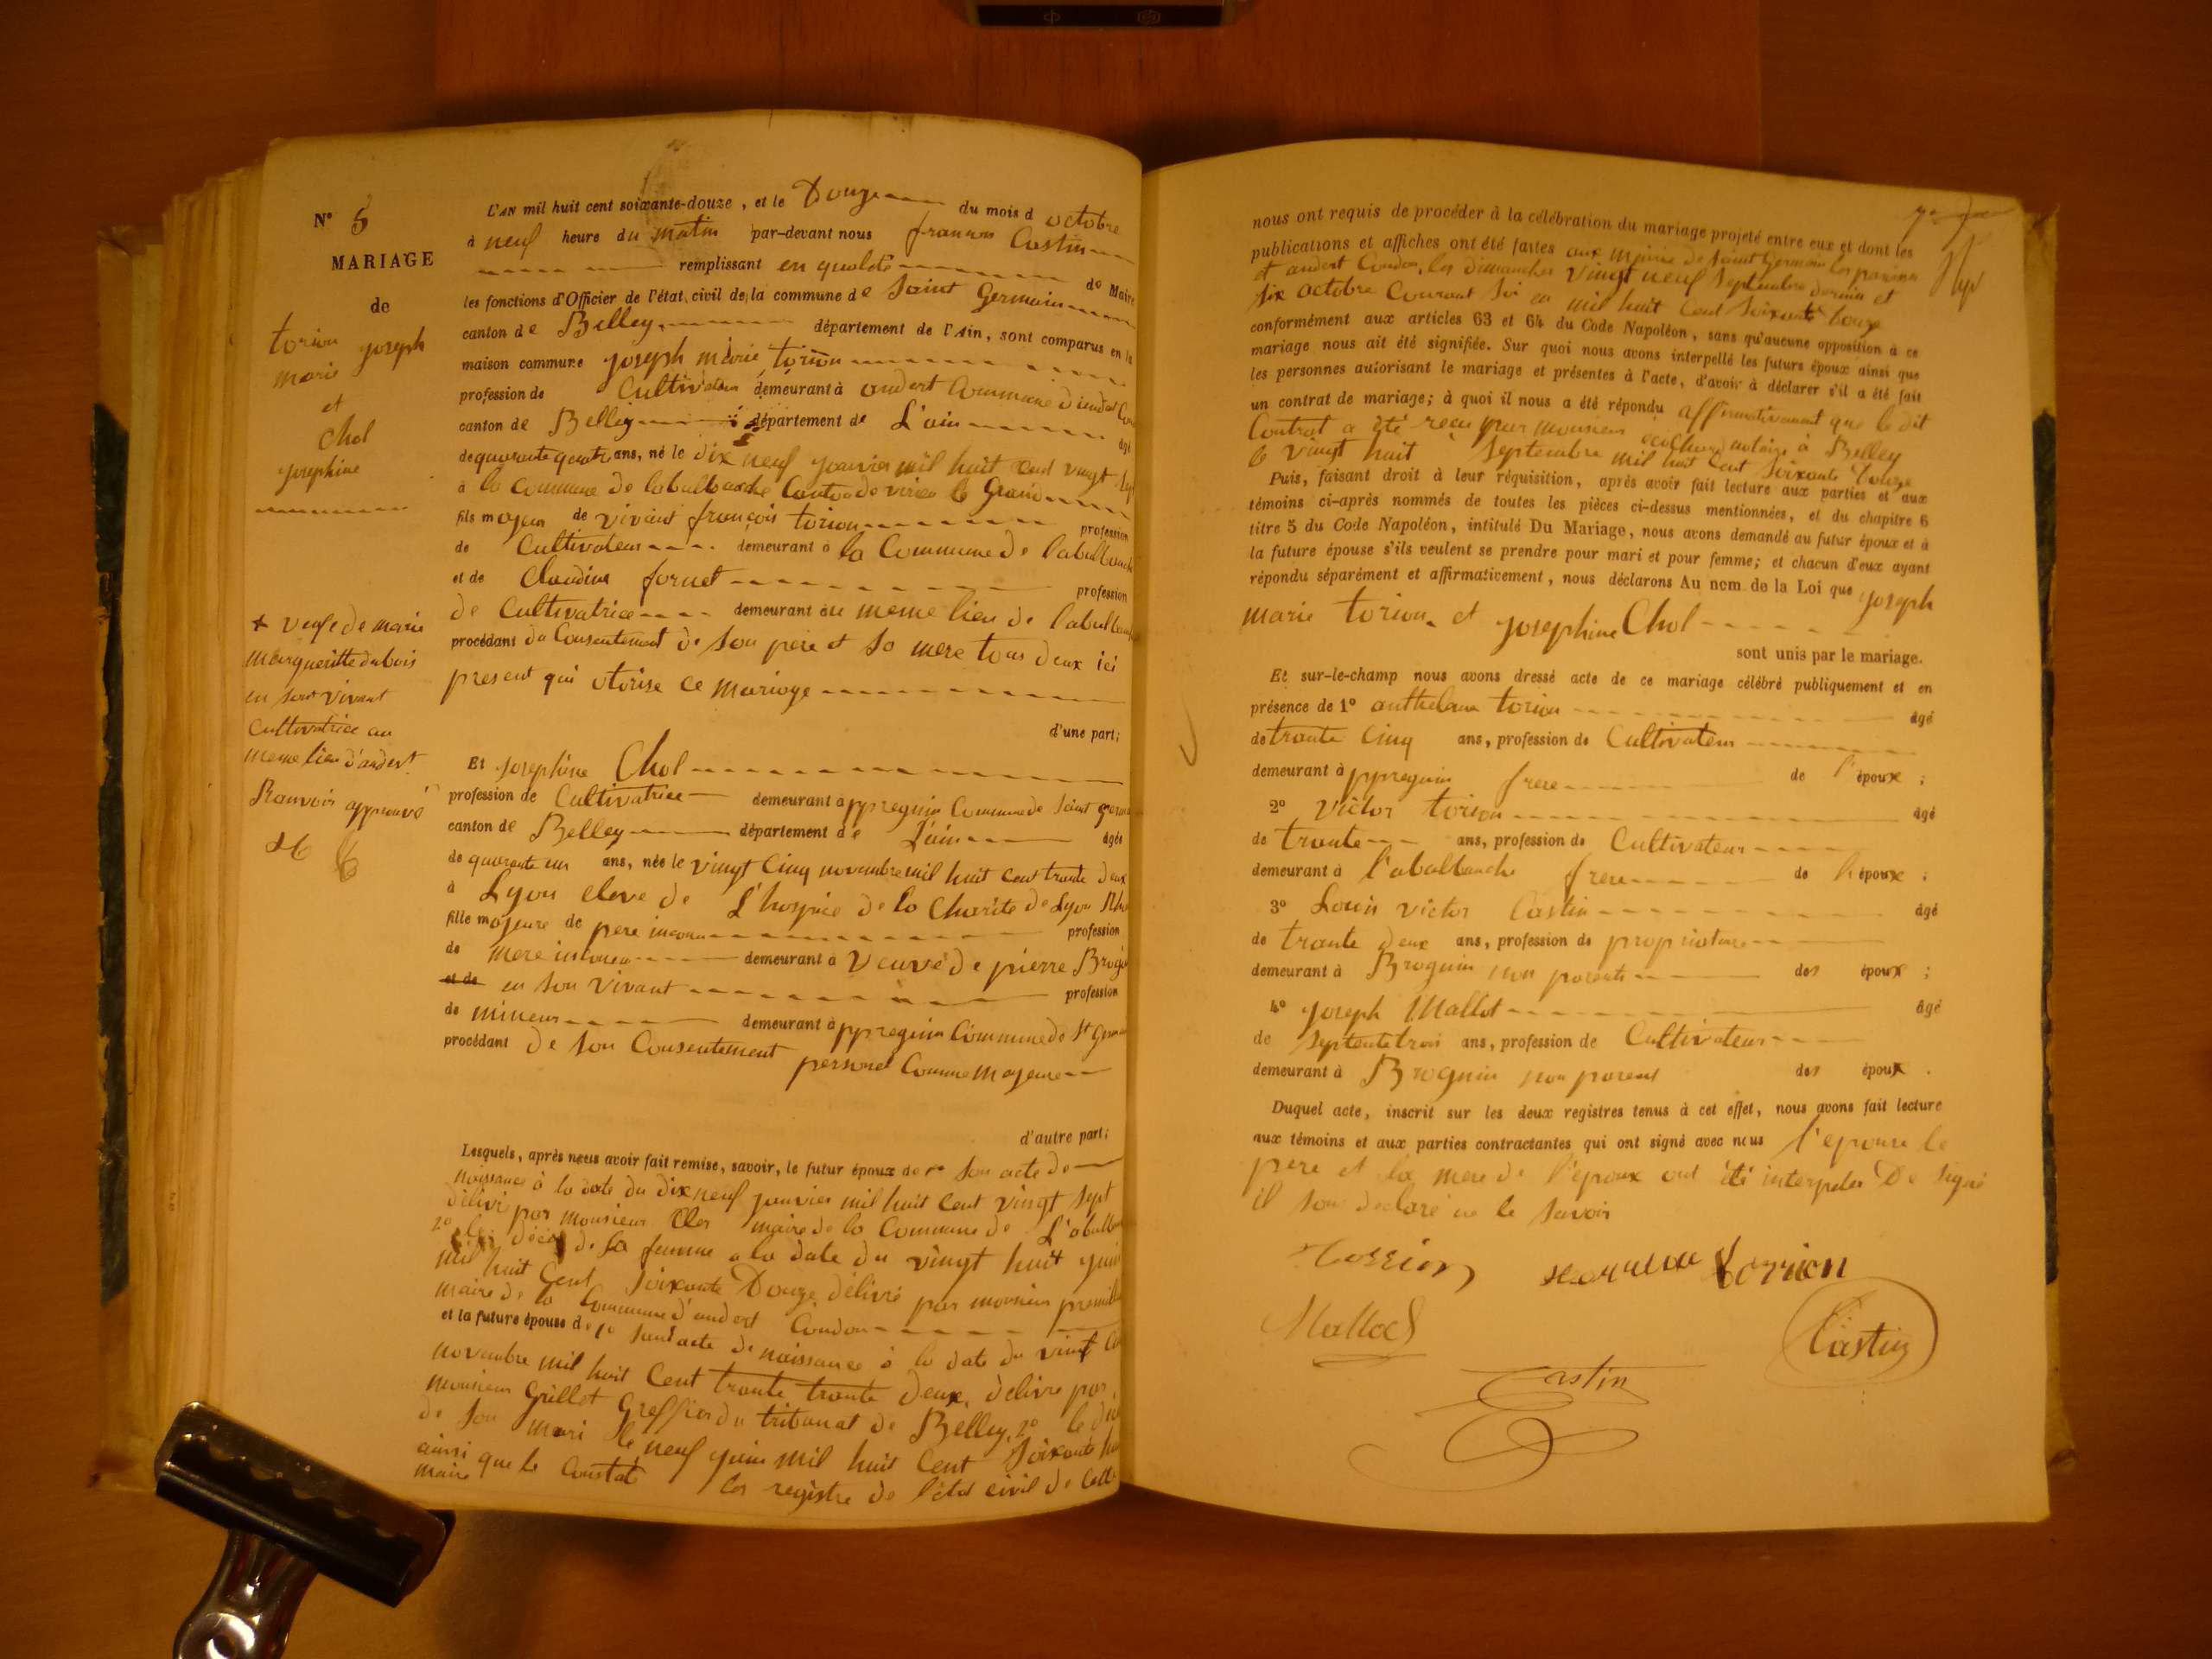 N° 5
MARIAGE
de
torion joseph
marie
et
Chol
josephine
+ veufe de marie
margueritte dubois
en sont vivant
Cultivatrice au
meme lieu d'andert
Ranvoir approuvé
L'AN mil huit cent soixante-douze, et le Douze du mois d octobre
à neuf heure du matin par-devant nous Castin
remplissant en qualité de Maire
les fonctions d'Officier de l'état civil de la commune de Saint Germain
canton de Belley, département de l'Ain, sont comparus en la
maison commune joseph marie torion
profession de Cultivateur demeurant à andert Commune d'andert
canton de Belley département de L'ain âgé
de quarante quatre ans, né le dix neuf janvier mil huit Cent vingt
à la Commune de labalbauche Canton de virieu le Grand
fils majeur de vivant françois torion profession
de Cultivateur demeurant à la Commune de labalbauche
et de Claudine fornet profession
de Cultivatrice demeurant au meme lieu de
procédant du Consentement de son père et sa mere tous deux ici
present qui otorise ce mariage
d'une part;
Et josephine Chol
profession de Cultivatrice demeurant à ppregnin Commune de Saint
canton de Belley département de Lain âgée
de quarante un ans, née le vingt Cinq novembre mil huit cent trante deux
à Lyon eleve de L'hospice de la Charité de Lyon
fille majeure de pere inconu profession
de mere inconu demeurant à Veuve de pierre
et de en son vivant profession
de mineur demeurant à ppregnin Commune de St
procédant de son Consentement
personel Comme majeure
d'autre part;
Lesquels, après nous avoir fait remise, savoir, le futur époux de 1° son acte de
naissance à la date du dix neuf janvier mil huit Cent vingt sept
délivré par monsieur maire de la Commune de
2° décé de sa femme a la date du vingt huit
mil huit Cent Soixante Douze délivré par monsieur
maire de la Commune d'andert Condon
et la future épouse de 1° sont acte de naissance à la date du
novembre mil huit Cent trante trante deux, délivré par
monsieur Grillet Greffier du tribunat de Belley, 2° le
de son mari le neuf juin mil huit Cent Soixante
ainsi que le Constate les registre de l'état civil de
maire
nous ont requis de procéder à la célébration du mariage projeté entre eux et dont les
publications et affiches ont été faites aux mairie de Saint Germain les
et andert Condon, les dimanches vingt neuf Septembre dernier et
six octobre Courant mil huit Cent Soixante Douze
conformément aux articles 63 et 64 du Code Napoléon, sans qu'aucune opposition à ce
mariage nous ait été signifiée. Sur quoi nous avons interpellé les futurs époux ainsi que
les personnes autorisant le mariage et présentes à l'acte, d'avoir à déclarer s'il a été fait
un contrat de mariage; à quoi il nous a été répondu affirmativement que le dit
Contrat a été reçu par monsieur notaire à Belley
le vingt huit Septembre mil huit Cent Soixante Douze
Puis, faisant droit à leur réquisition, après avoir fait lecture aux parties et aux
témoins ci-après nommés de toutes les pièces ci-dessus mentionnées, et du chapitre 6
titre 5 du Code Napoléon, intitulé Du Mariage, nous avons demandé au futur époux et à
la future épouse s'ils veulent se prendre pour mari et pour femme; et chacun d'eux ayant
répondu séparément et affirmativement, nous déclarons Au nom de la Loi que joseph
marie torion et josephine Chol
sont unis par le mariage.
Et sur-le-champ nous avons dressé acte de ce mariage célébré publiquement et en
présence de 1° anthelme torion âgé
de trante Cinq ans, profession de Cultivateur
demeurant à ppregnin frere de l'époux;
2° Victor torion âgé
de trante ans, profession de Cultivateur
demeurant à l'abalbauche frere de l'époux;
3° Louis victor Castin âgé
de trante deux ans, profession de propriataire
demeurant à Brognin non parents des époux;
4° joseph Mallot âgé
de septente trois ans, profession de Cultivateur
demeurant à Brognin non parent des époux.
Duquel acte, inscrit sur les deux registres tenus à cet effet, nous avons fait lecture
aux témoins et aux parties contractantes qui ont signé avec nous l'epouse le
pere et la mere de l'époux ont été interpeler De signé
il son declaré ne le savoir
torrion
Mallod
Castin
Castin